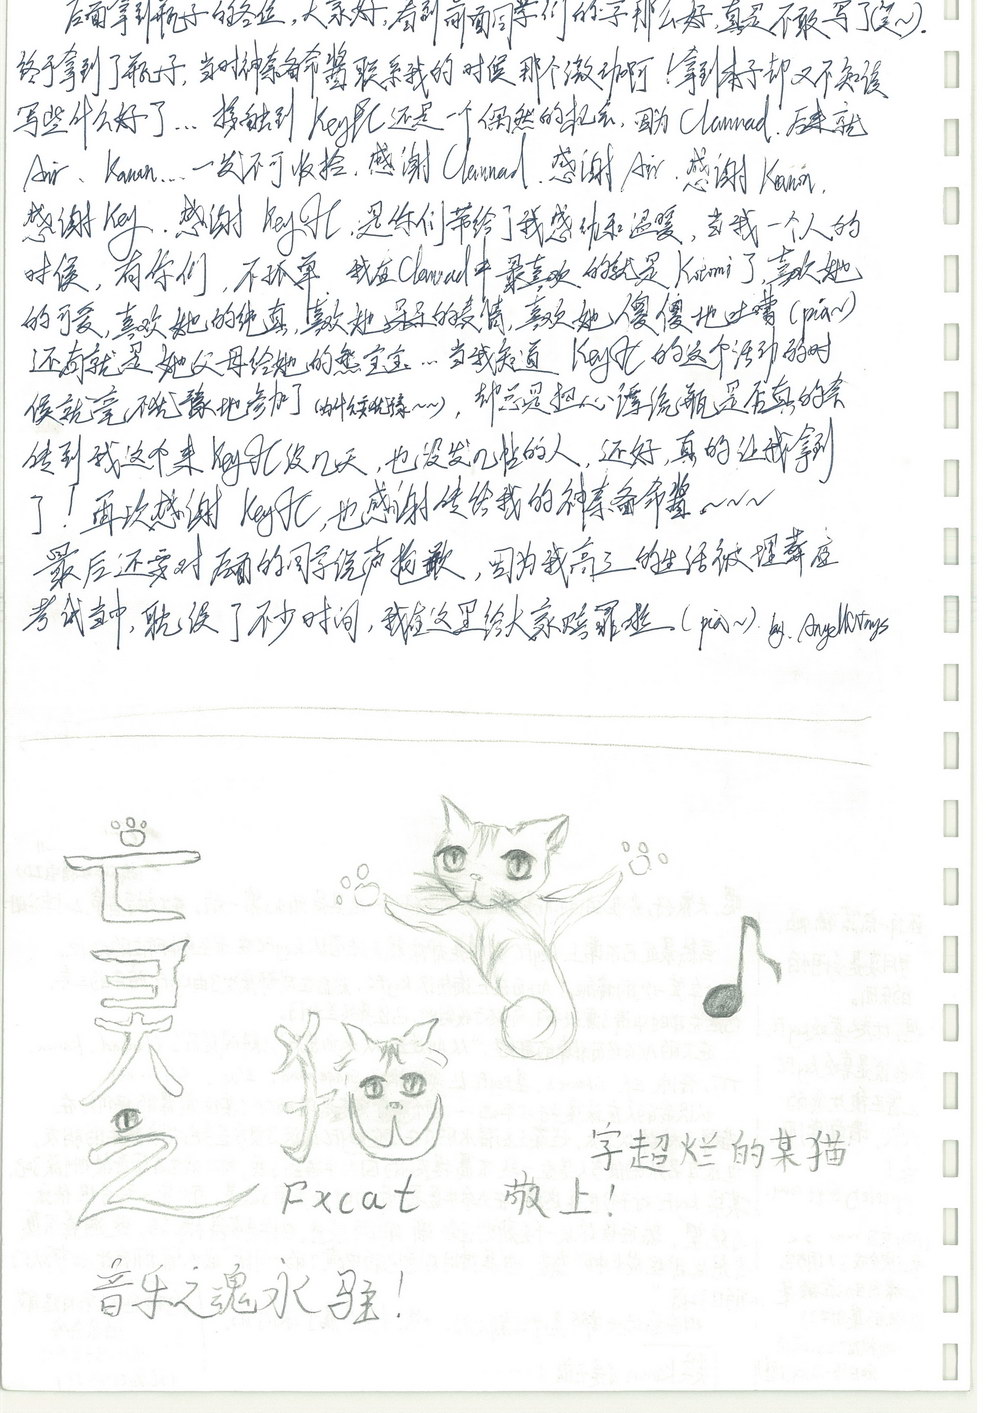 后面拿到瓶子的各位,大家好,看到前面同学们的字那么好,真是不敢写了(笑~).
终于拿到了瓶子,当时神奈备命酱联系我的时候那个激动啊!拿到本子却又不知该
写些什么好了... 接触到 KeyFC 还是一个偶然的机会,因为 Clannad. 后来就
Air、Kanon... 一发不可收拾,感谢 Clannad. 感谢 Air. 感谢 Kanon.
感谢 Key. 感谢 KeyFC,是你们带给了我感动和温暖,当我一个人的
时候,有你们,不孤单. 我在Clannad中最喜欢的就是 Kotomi 了,喜欢她
的可爱,喜欢她的纯真,喜欢她呆呆的表情,喜欢她傻傻地吐嘈(pia~)
还有就是她父母给她的熊宝宝... 当我知道 KeyFC 的这个活动的时
候就毫不犹豫地参加了(为什么要犹豫~~),却总是担心漂流瓶是否真的会
传到我这个来KeyFC没几天,也没发几帖的人,还好,真的让我拿到
了!再次感谢 KeyFC,也感谢传给我的神奈备命酱~~~
最后还要对后面的同学说声抱歉,因为我高三的生活被埋葬在
考试当中,耽误了不少时间,我在这里给大家赔罪啦.(pia~). by.
亡灵之猫
Fxcat
字超烂的某猫
敬上!
音乐之魂永驻!